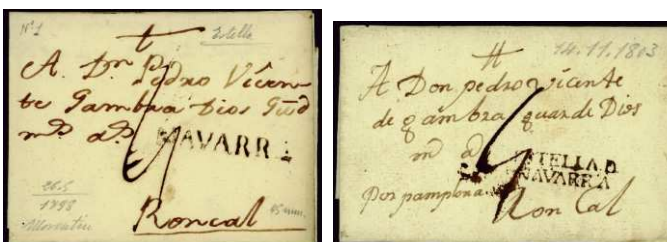 Nº 1
Estella
A. Dn Pedro Vicen-
te Gambra Dios Gud
ms as
NAVARRA
26.5
1798
Roncal
45 mm.
14.11.1803
A Don pedro vicente
de gambra guarde Dios
ms as
ESTELLA D
NAVARRA
Por pamplona
Ron Cal